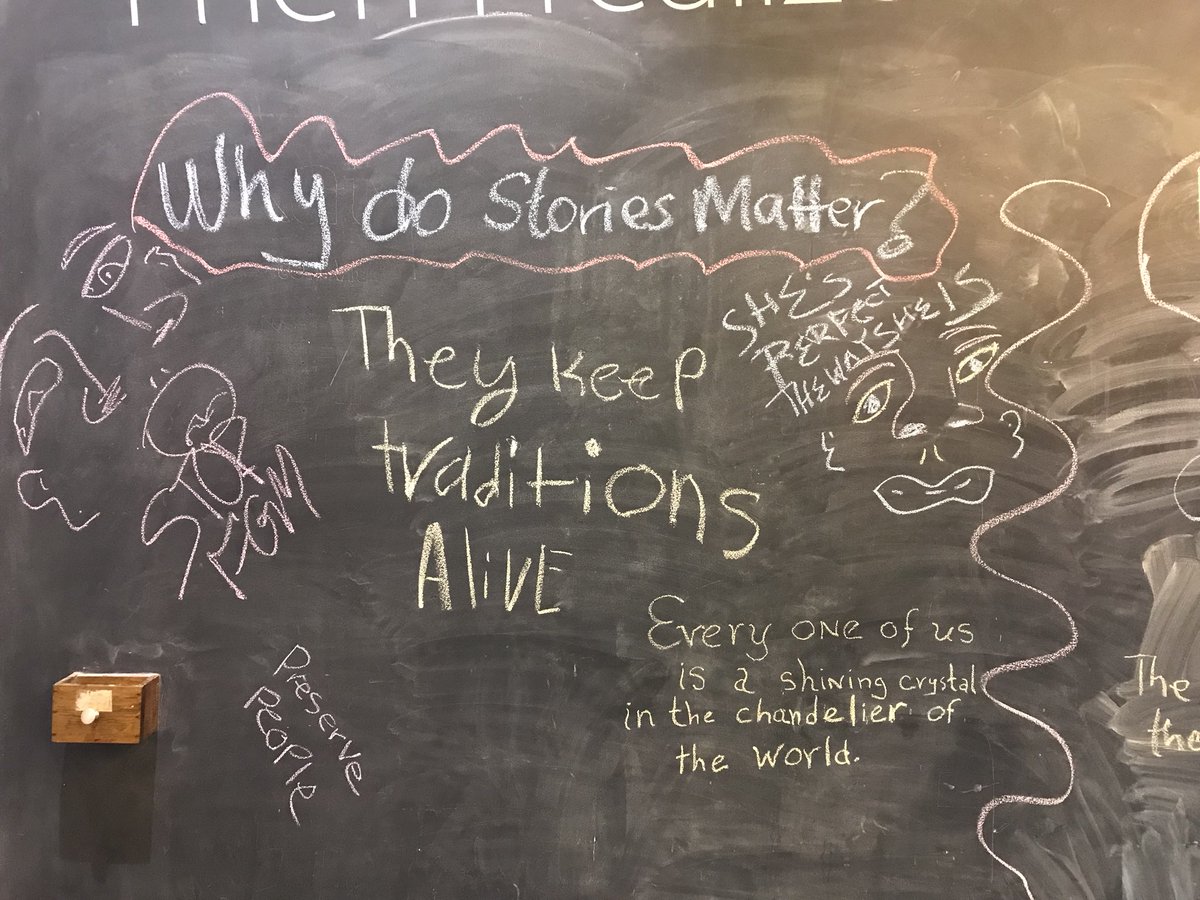 Why do Stories Matter?
They keep
traditions
AliVE
SHE'S
PERFECT
THE WAY SHE IS
Every ONE of us
is a shining crystal
in the chandelier of
the world.
Preserve
People
The
the